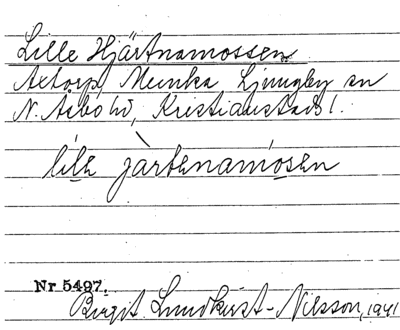 Lille Hjärtnamossen
Axtorp, Munka Ljungby sn
N. Åsbo hd, Kristianstads l.
lile järtenamosen
Nr 5497.
Birgit Lundkvist-Nilsson, 1941